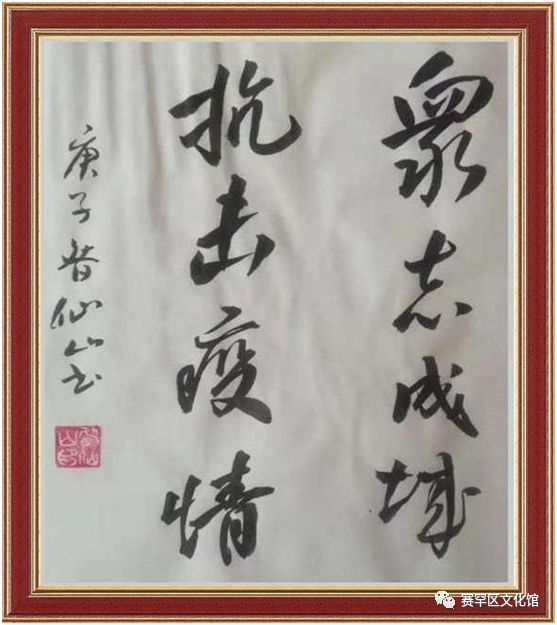 衆志成城
抗击疫情
庚子仙山书
仙山印
赛罕区文化馆